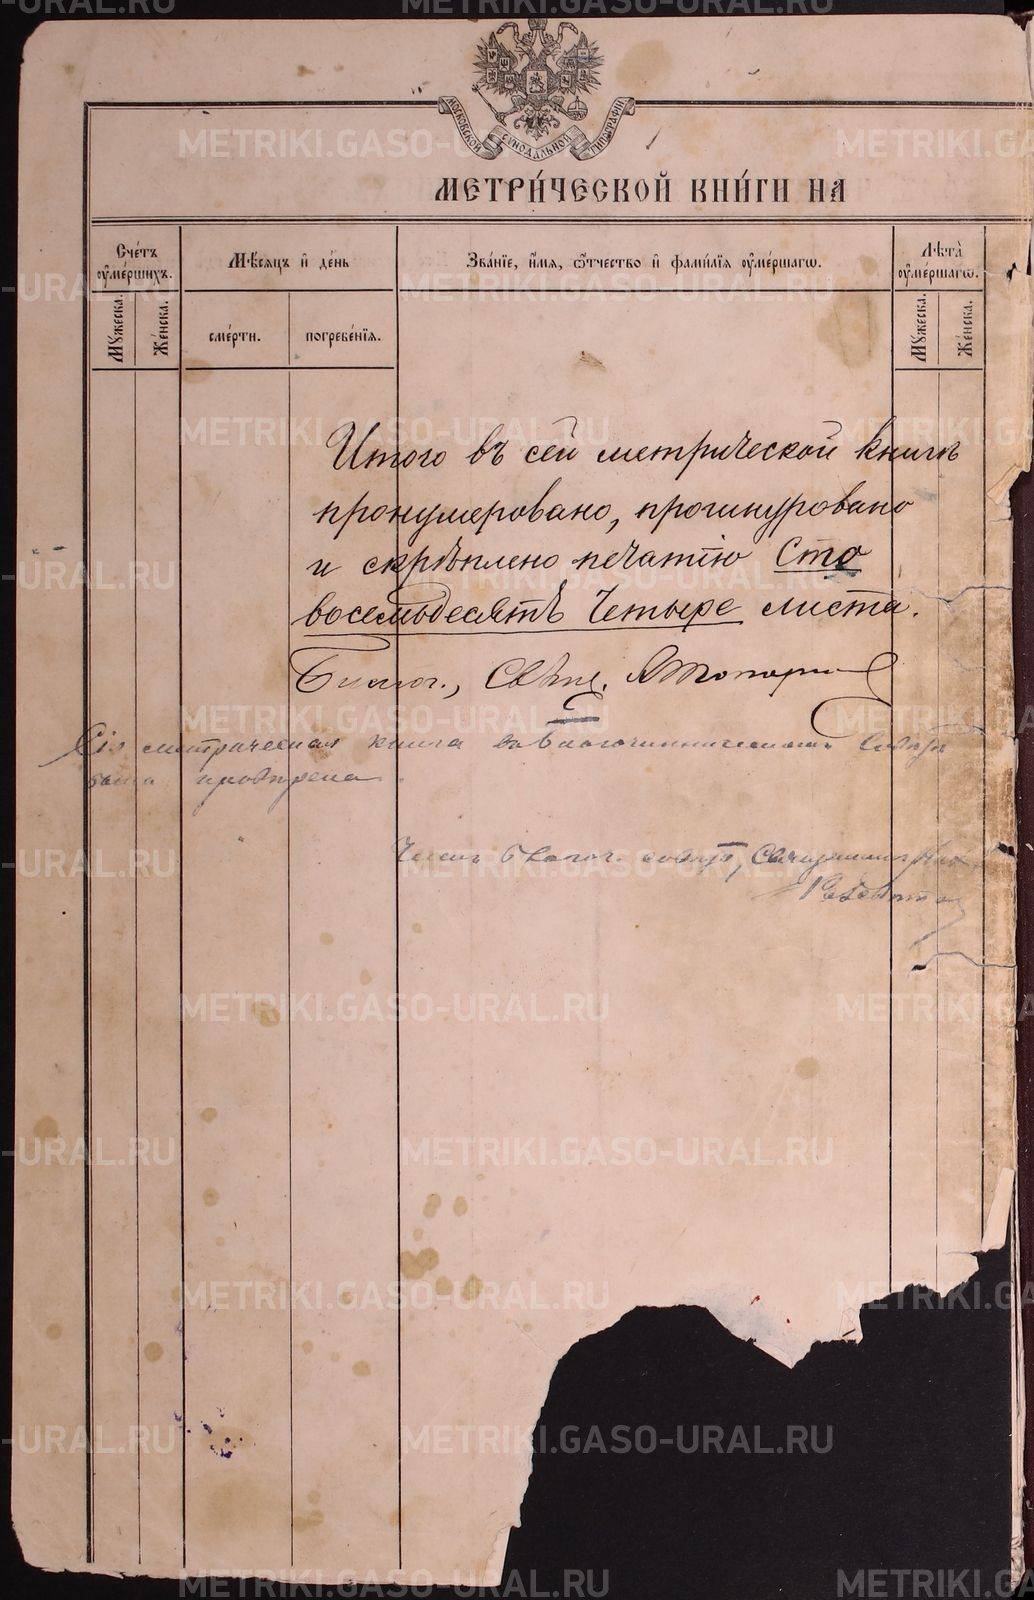 МОСКОВСКОЙ СѴНОДАЛЬНОЙ ТИПОГРАФІИ
МЕТРИ́ЧЕСКОЙ КНИ́ГИ НА
Сче́тъ ᲂу҆ме́ршихъ.
Мѣ́сяцъ и҆ де́нь
Зва́нїе, и҆́мя, ѻ҆́тчество и҆ фами́лїя ᲂу҆ме́ршагѡ.
Лѣта̀ ᲂу҆ме́ршагѡ.
Мꙋ́жеска.
Же́нска.
сме́рти.
погребе́нїя.
Мꙋ́жеска.
Же́нска.
Итого въ сей метрической книгѣ
пронумеровано, прошнуровано
и скрѣплено печатію Сто
восемьдесятъ четыре листа.
Благоч., Свящ.
Сія метрическая книга въ Благочинническомъ Совѣтѣ
была провѣрена.
Членъ Благоч. совѣта, Священникъ
METRIKI.GASO-URAL.RU